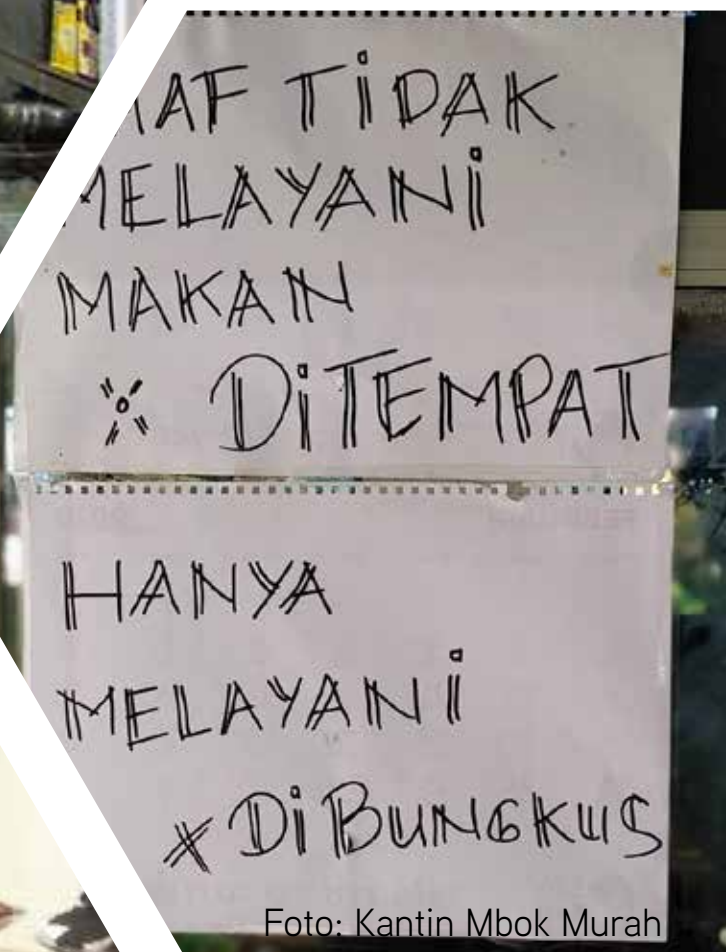 TiDAK
MELAYANi
MAKAN
※ DiTEMPAT
HANYA
MELAYANi
* DiBUNGKUS
Foto: Kantin Mbok Murah